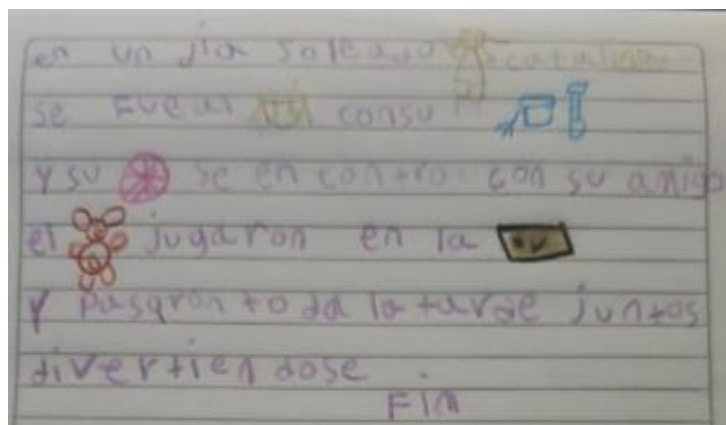 en un dia soleado catalina
se fue al consu
y su se en contro con su amigo
el jugaron en la
y pasaron to da la tarde juntos
divertien dose.
Fin